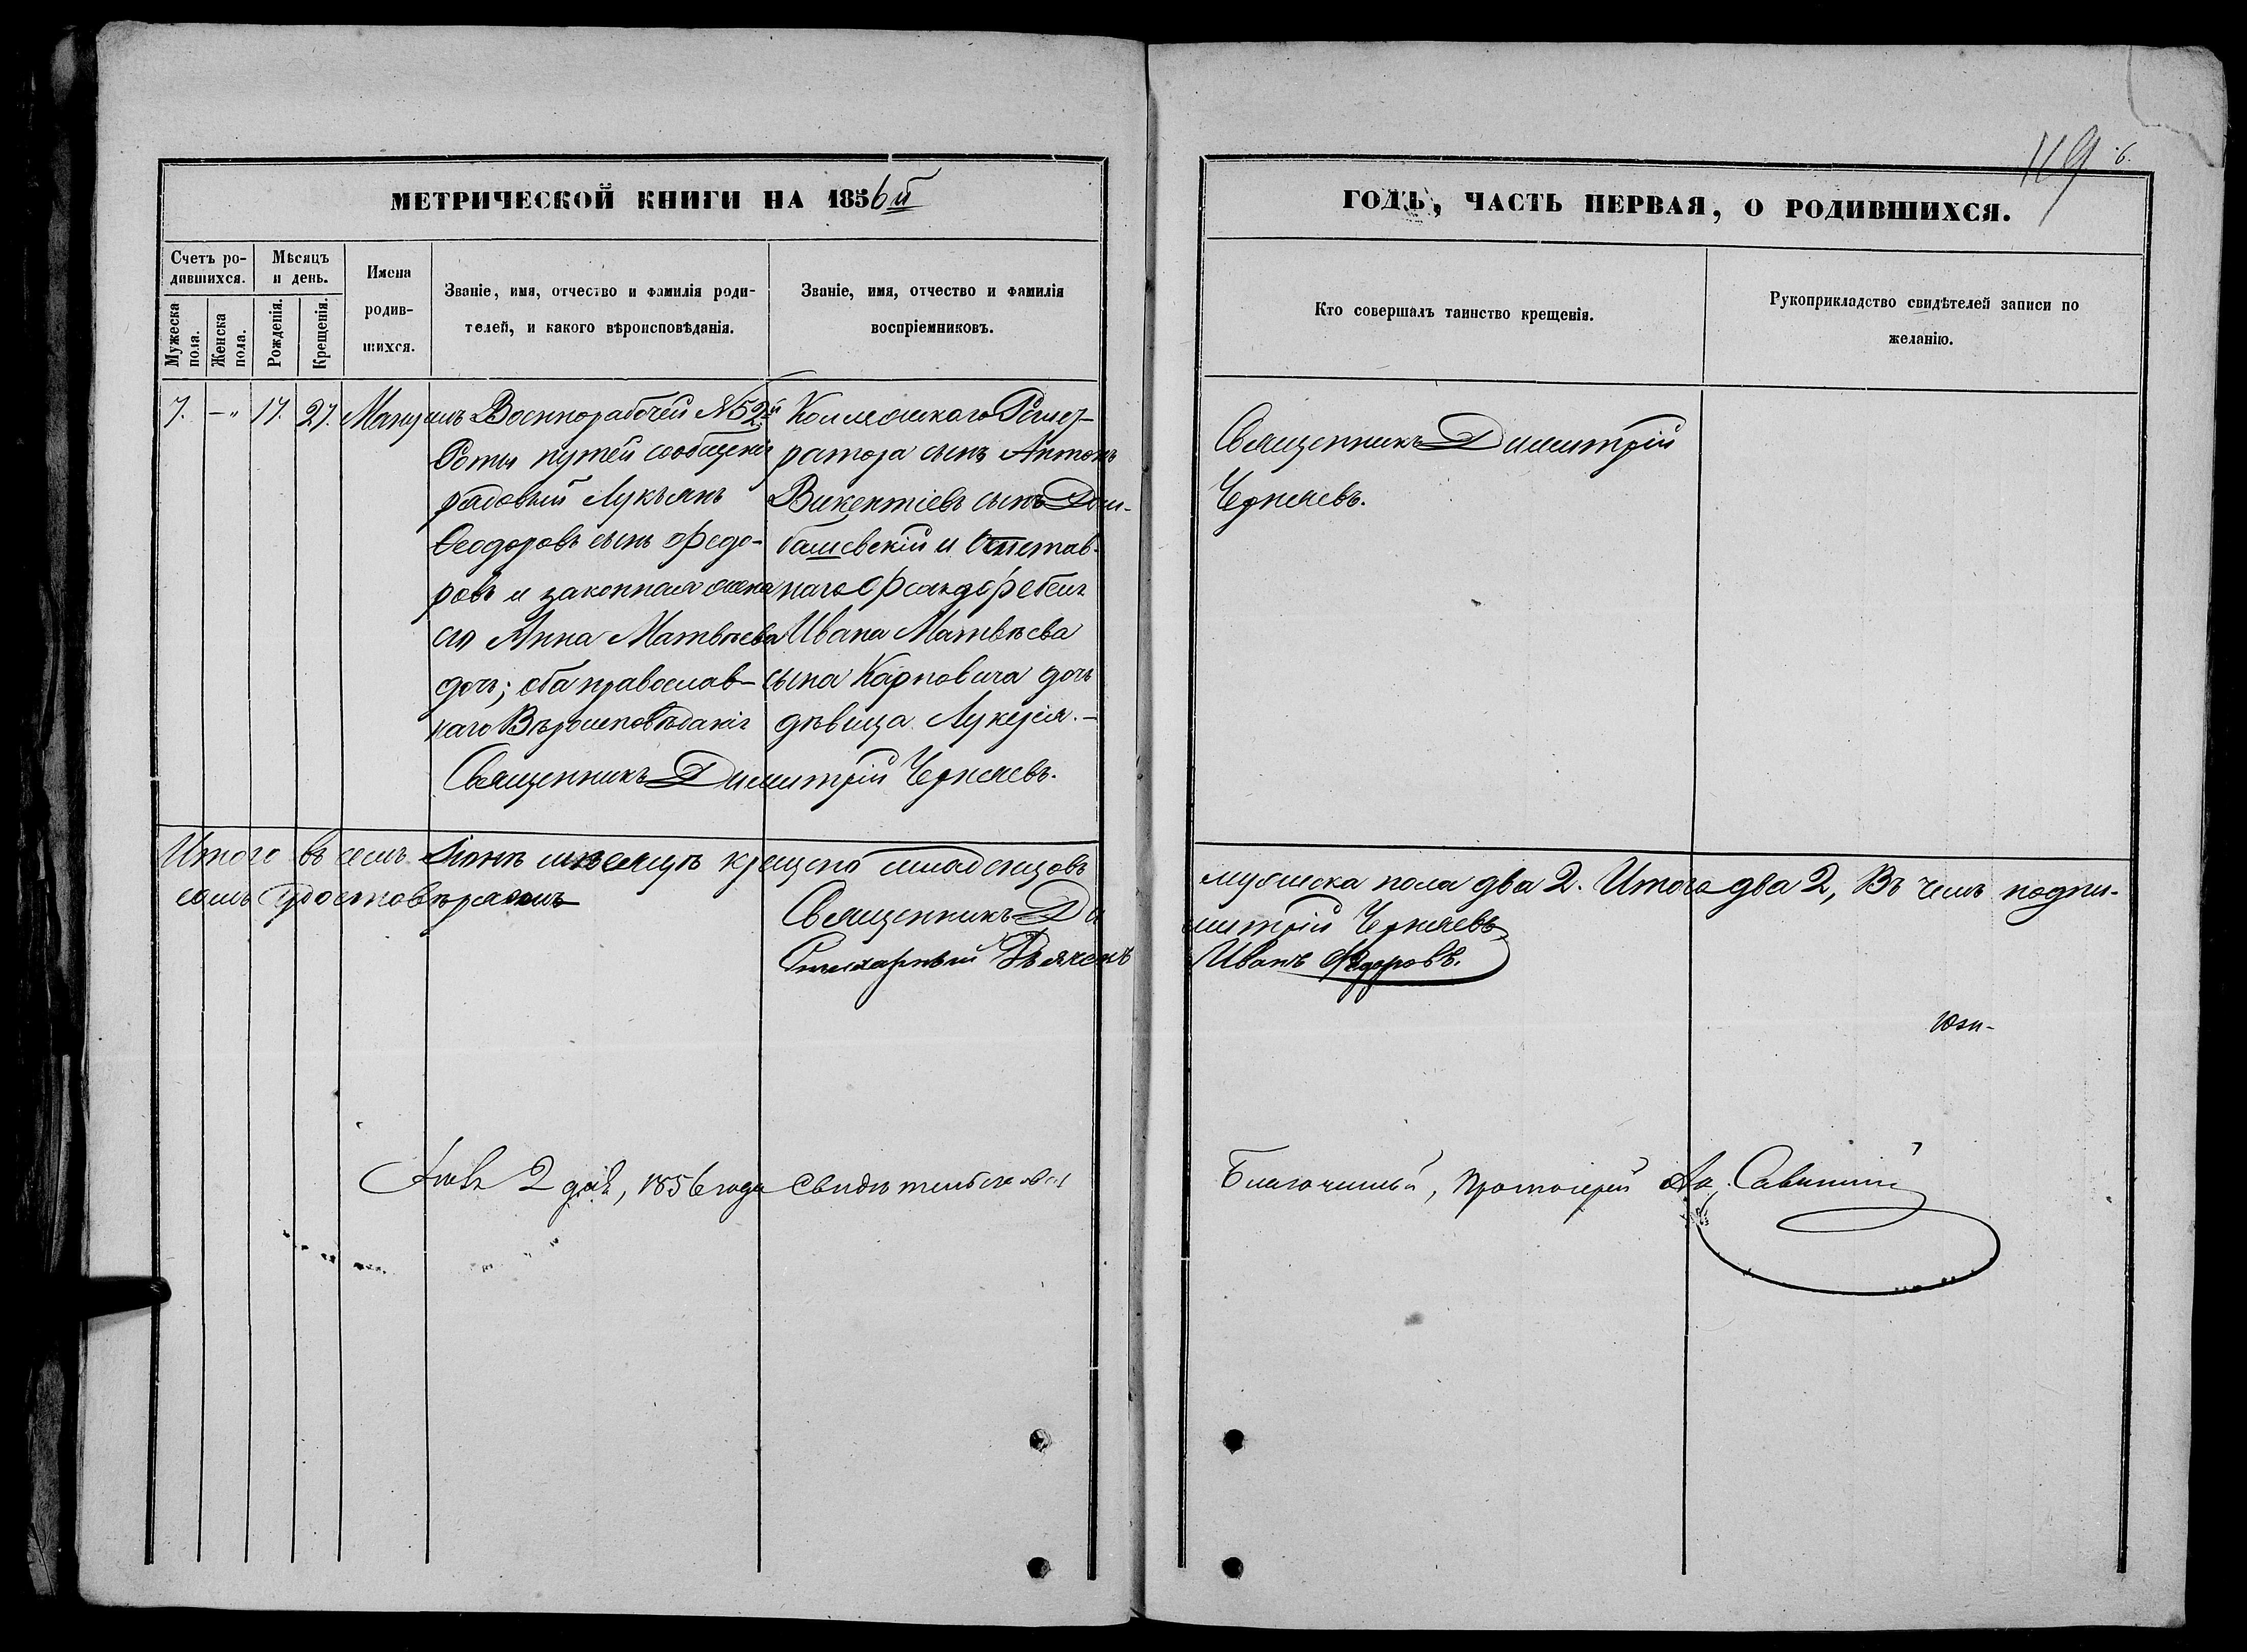 119
6.
МЕТРИЧЕСКОЙ КНИГИ НА 1856й
ГОДЪ, ЧАСТЬ ПЕРВАЯ, О РОДИВШИХСЯ.
Счетъ ро-
дившихся.
Мужеска
пола.
Женска
пола.
Мѣсяцъ
и день.
Рожденія.
Крещенія.
Имена
родив-
шихся.
Званіе, имя, отчество и фамилія роди-
телей, и какого вѣроисповѣданія.
Званіе, имя, отчество и фамилія
воспріемниковъ.
Кто совершалъ таинство крещенія.
Рукоприкладство свидѣтелей записи по
желанію.
7. —„ 17. 27.
Военнорабочей №52й
Роты путей сообщенія
рядовый Лукъянъ
Ѳеодоровъ сынъ Федо-
ровъ и законная жена
его Анна Матвѣева
дочь; оба православ-
наго Вѣроисповѣданія
Коллежскаго Регист-
ратора сынъ Антонъ
Викентіевъ сынъ Дом-
башевскій и Отстав-
наго
Ивана Матвѣева
сына Карповича дочь
дѣвица Лукерія.—
Священникъ Димитрій Черняевъ.
Священникъ Димитрій
Черняевъ.
Итого въ семъ Іюнѣ мѣсяцѣ крещено младенцовъ
мужеска пола два 2. Итого два 2, Въ чемъ подпи-
семъ удостовѣряемъ
Священникъ Димитрій Черняевъ
Дьячекъ Иванъ Федоровъ.
Іюля 2 дня, 1856 года свидѣтельствовалъ
Благочинный, Протоіерей